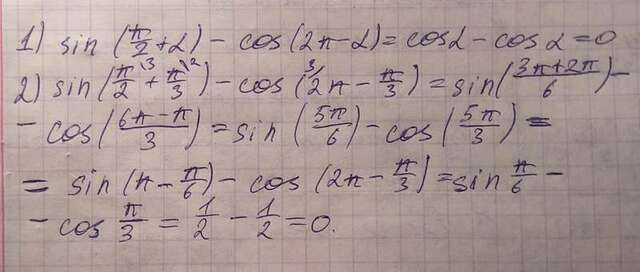 1) sin(π/2+α) - cos(2π-α) = cosα - cosα = 0
2) sin(π/2\3 + π/3\2) - cos(3/2π - π/3) = sin((3π+2π)/6) -
- cos((6π-π)/3) = sin(5π/6) - cos(5π/3) =
= sin(π-π/6) - cos(2π-π/3) = sin π/6 -
- cos π/3 = 1/2 - 1/2 = 0.